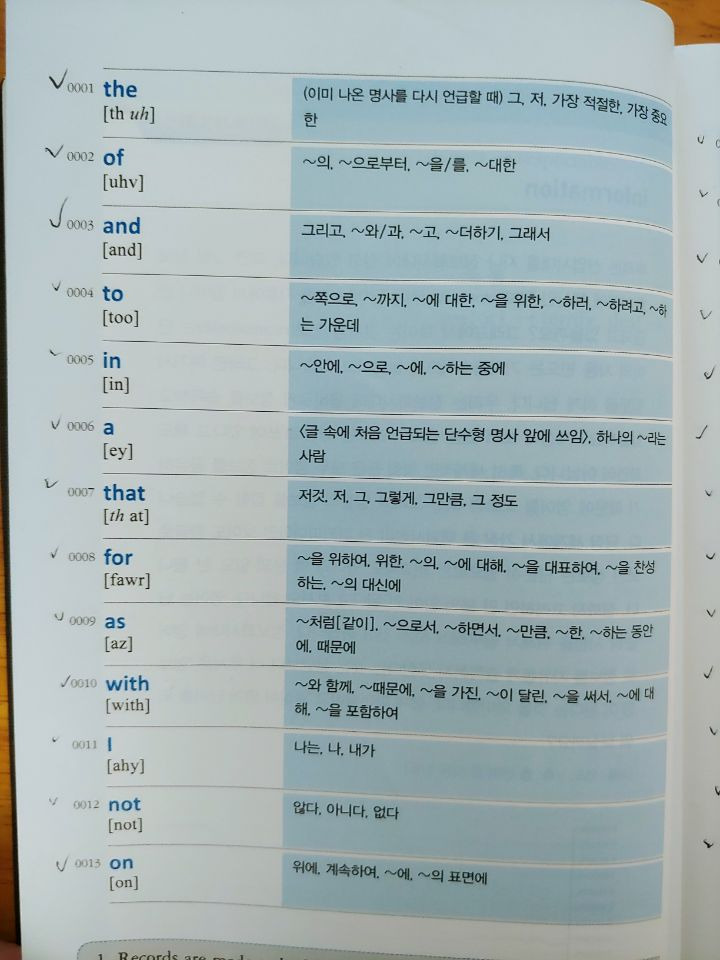 0001 the (이미 나온 명사를 다시 언급할 때) 그, 저, 가장 적절한, 가장 중요
[th uh] 한
0002 of ~의, ~으로부터, ~을/를, ~대한
[uhv]
0003 and 그리고, ~와/과, ~고, ~더하기, 그래서
[and]
0004 to ~쪽으로, ~까지, ~에 대한, ~을 위한, ~하러, ~하려고, ~하
[too] 는 가운데
0005 in ~안에, ~으로, ~에, ~하는 중에
[in]
0006 a <글 속에 처음 언급되는 단수형 명사 앞에 쓰임>, 하나의 ~라는
[ey] 사람
0007 that 저것, 저, 그, 그렇게, 그만큼, 그 정도
[th at]
0008 for ~을 위하여, 위한, ~의, ~에 대해, ~을 대표하여, ~을 찬성
[fawr] 하는, ~의 대신에
0009 as ~처럼[같이], ~으로서, ~하면서, ~만큼, ~한, ~하는 동안
[az] 에, 때문에
0010 with ~와 함께, ~때문에, ~을 가진, ~이 달린, ~을 써서, ~에 대
[with] 해, ~을 포함하여
0011 I 나는, 나, 내가
[ahy]
0012 not 않다, 아니다, 없다
[not]
0013 on 위에, 계속하여, ~에, ~의 표면에
[on]
1. Records are